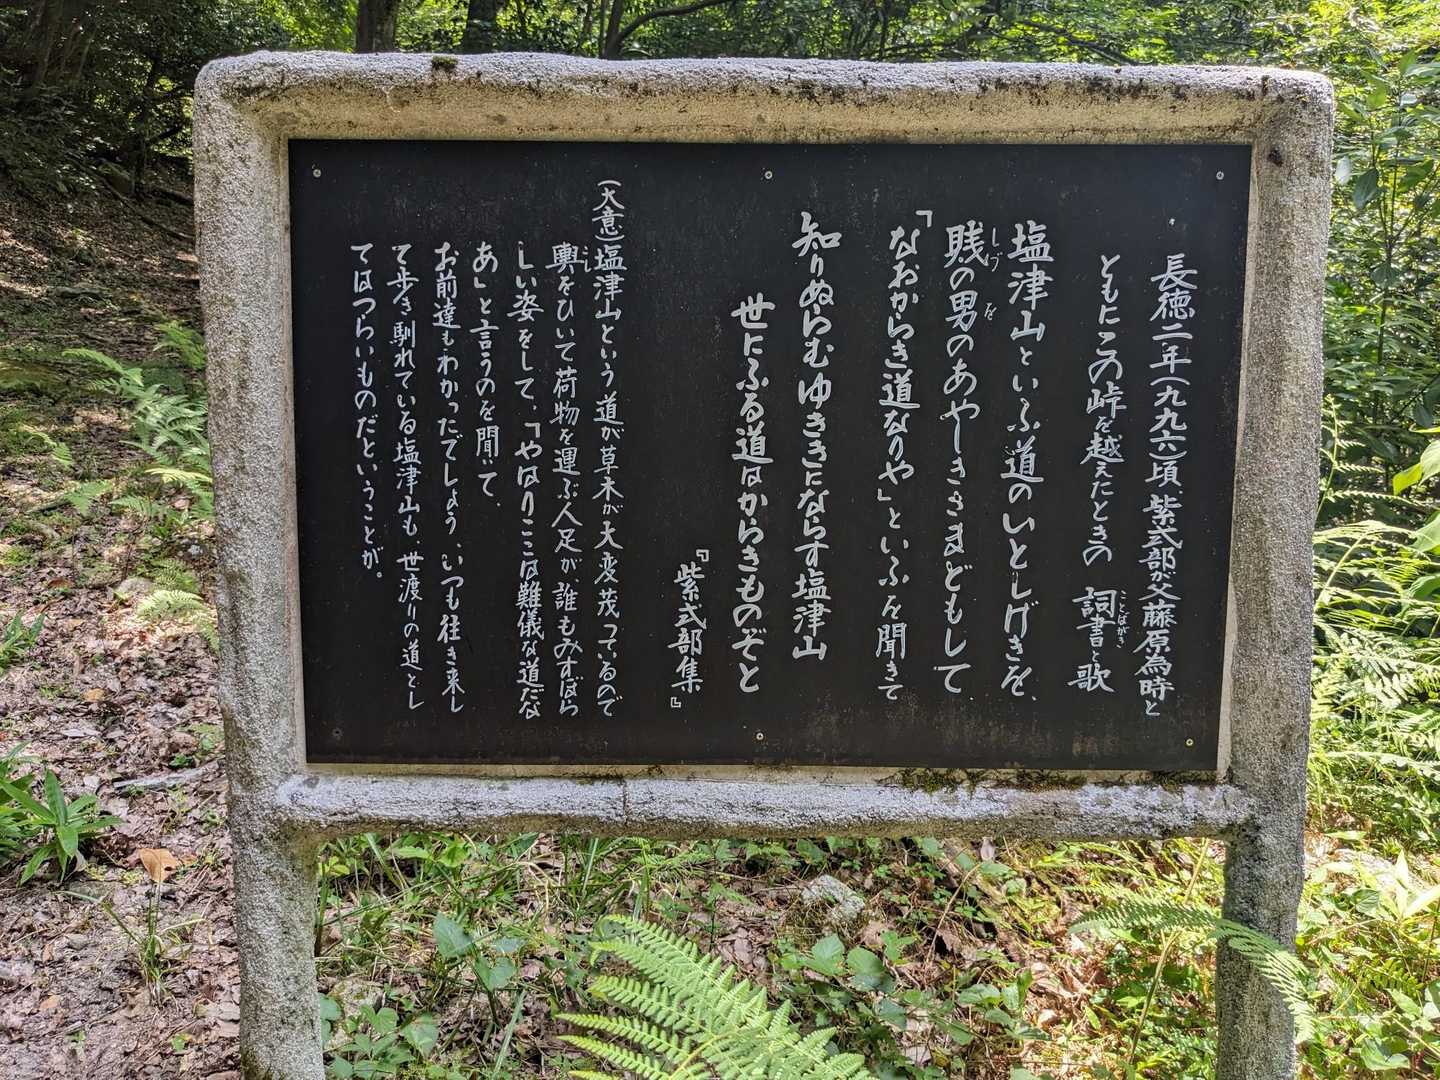 長徳二年(九九六)頃、紫式部が父藤原為時と
ともにこの峠を越えたときの 詞書と歌
ことばがき
塩津山といふ道のいとしげきを、
賎の男のあやしきさまどもして、
しづ を
「なおからき道なりや」といふを聞きて
知りぬらむゆききにならす塩津山
世にふる道はからきものぞと
『紫式部集』
(大意)塩津山という道が草木が大変茂っているので
輿をひいて荷物を運ぶ人足が、誰もみすぼら
こし
しい姿をして、「やはりここは難儀な道だな
あ」と言うのを聞いて、
お前達もわかったでしょう、いつも往き来し
て歩き馴れている塩津山も 世渡りの道とし
てはつらいものだということが。